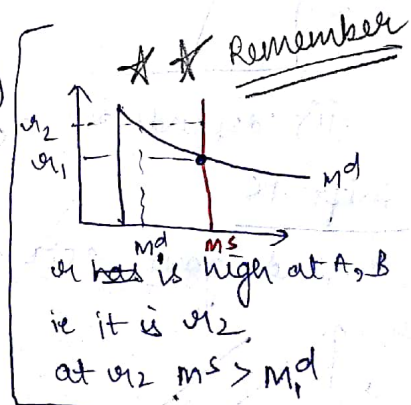 Remember
r2
r1
Md
Md
ms
r has is high at A, B
ie it is r2
at r2 ms > M1d